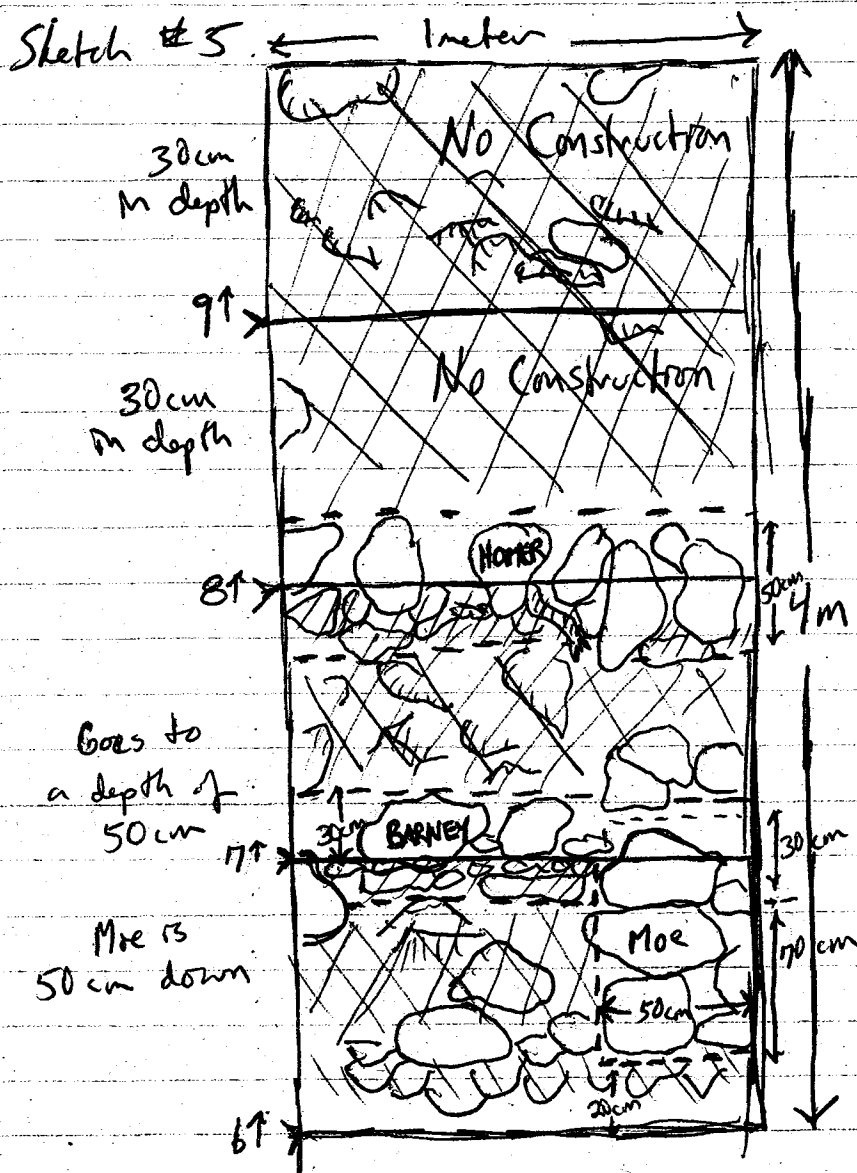 Sketch #5
1 meter
No Construction
30cm
in depth
9↑
No Construction
30cm
in depth
HOMER
8↑
50cm
4m
Goes to
a depth of
50cm
30cm
BARNEY
30cm
7↑
Moe is
50cm down
MOE
70cm
50cm
20cm
6↑